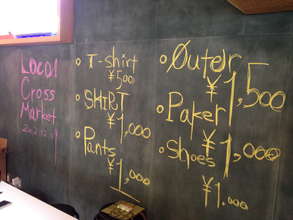 LOCO1
Cross
Market
T-shirt
¥500
SHIRT
¥1,000
Pants
¥1,000
Outer
¥1,500
Paker
¥1,000
Shoes
¥1.000